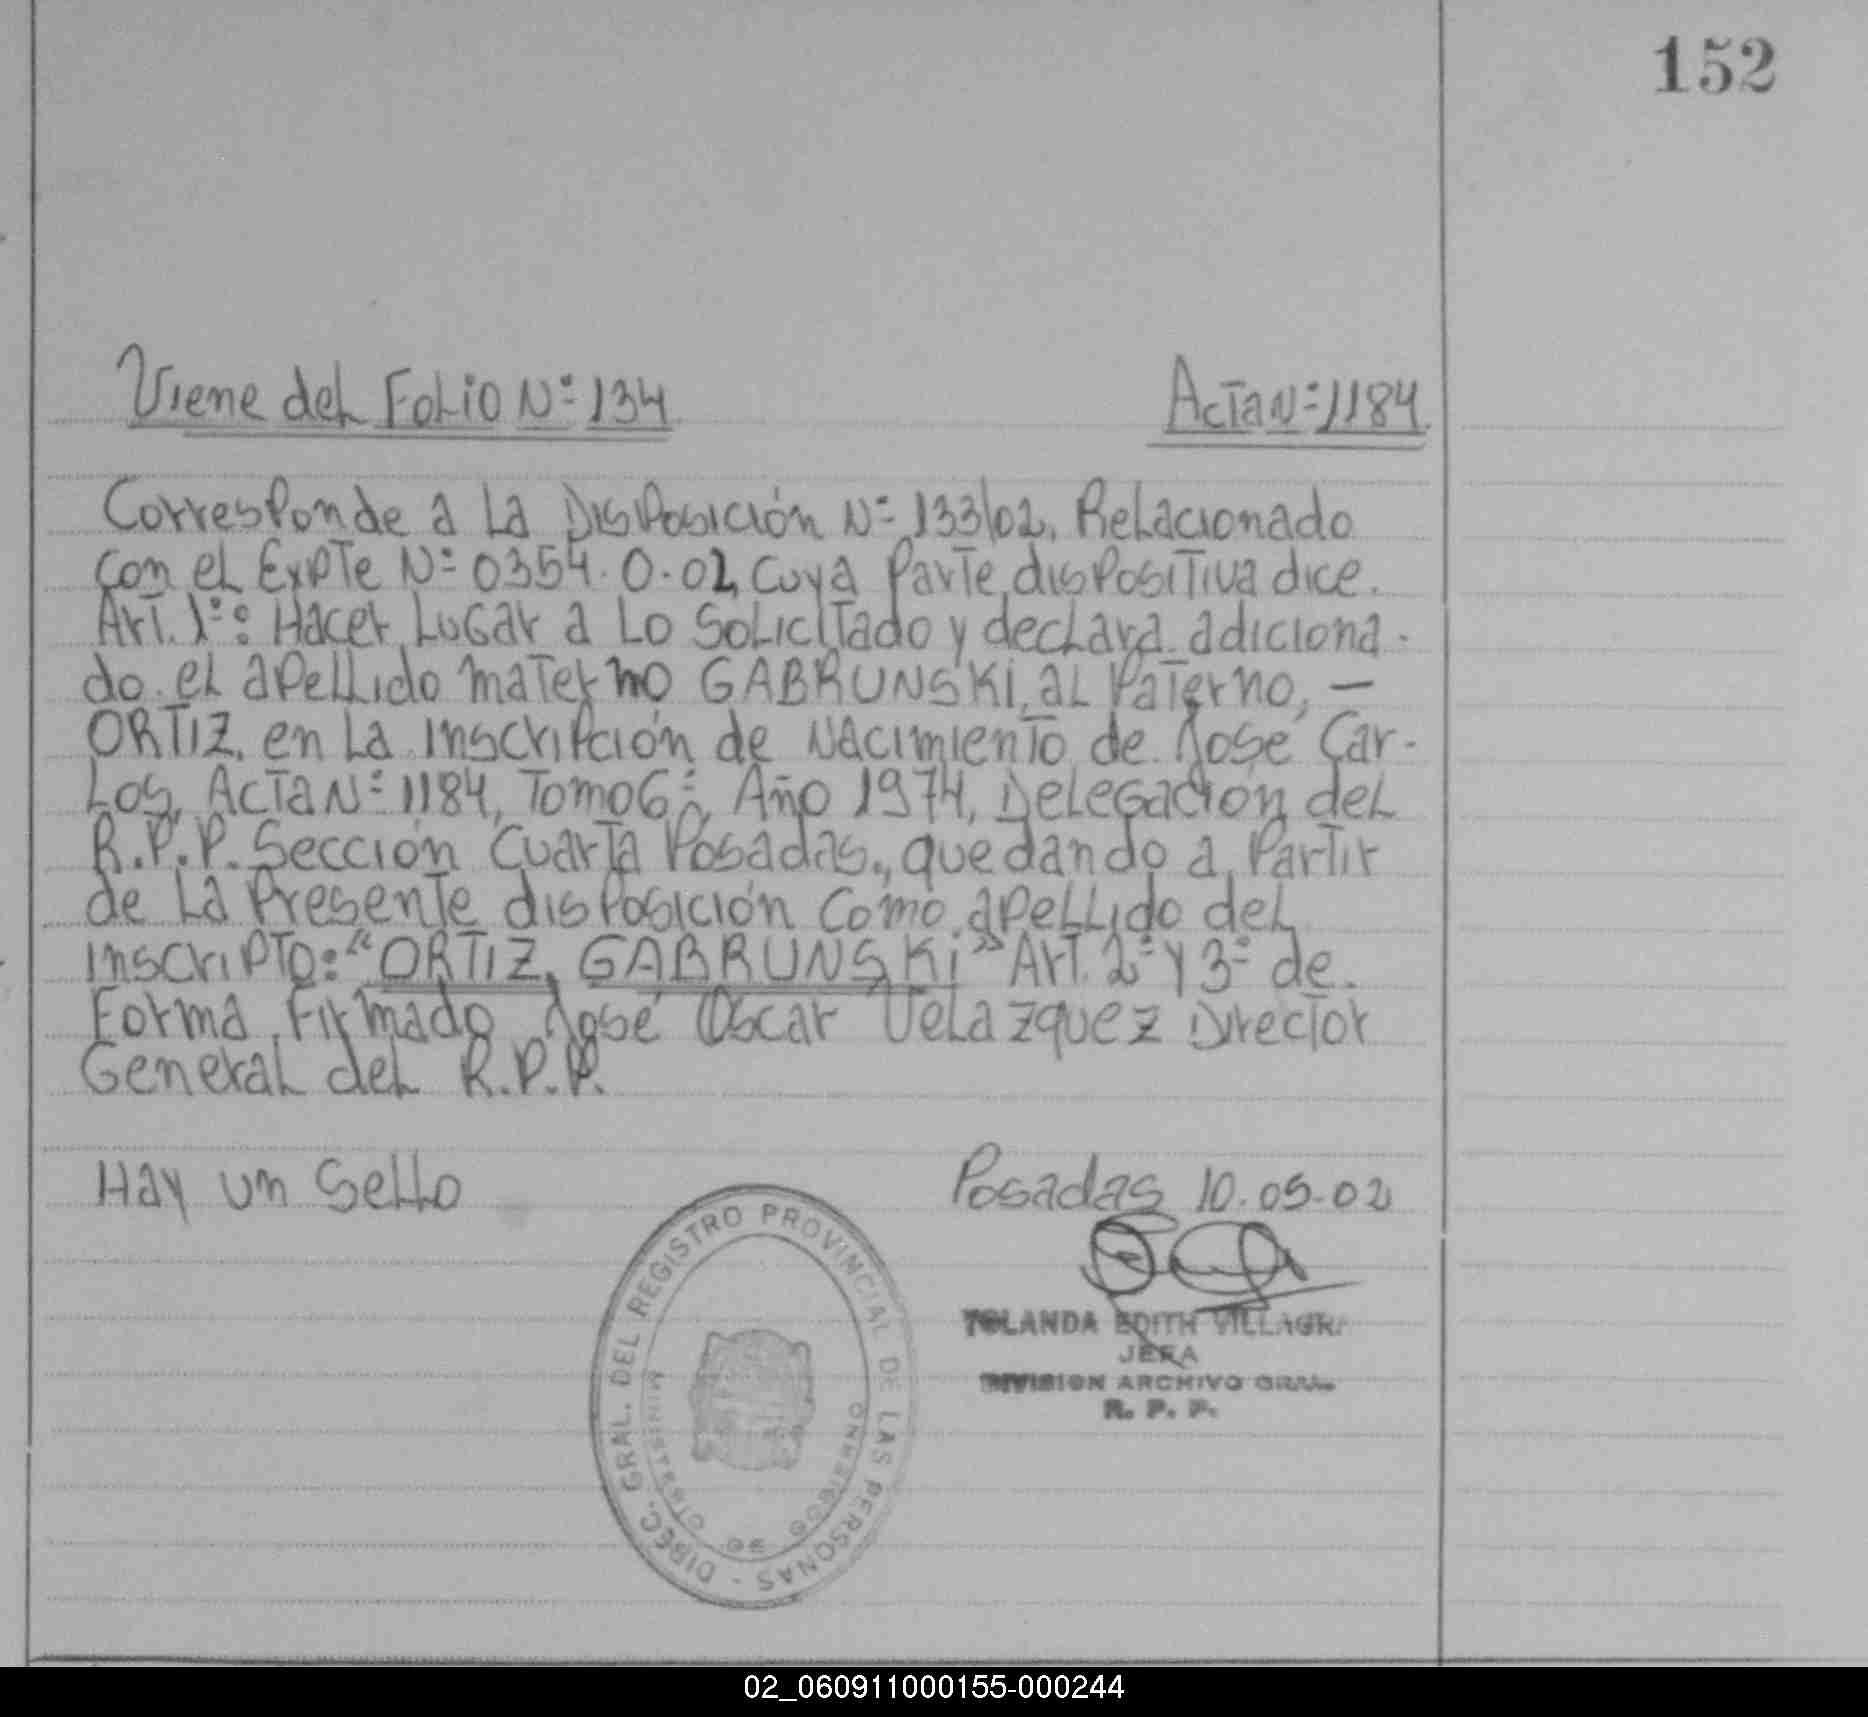 152
Viene del Folio Nº 134
Acta Nº 1184
Corresponde a La Disposición Nº 133/02, Relacionado
con el Expte Nº 0354.0.02, cuya Parte dispositiva dice.
Art. 1º: Hacer Lugar a Lo Solicitado y declara adiciona-
do el apellido materno GABRUNSKI, al Paterno, —
ORTIZ, en La Inscripción de Nacimiento de José Car-
Los, Acta Nº 1184, Tomo 6º, Año 1974, Delegación del
R.P.P. Sección Cuarta Posadas., quedando a Partir
de La Presente disposición como apellido del
inscripto: "ORTIZ, GABRUNSKi" Art. 2º y 3º de
Forma, Firmado José Oscar Velazquez Director
General del R.P.P.
Hay un Sello
Posadas 10-05-02
DIREC. GRAL. DEL REGISTRO PROVINCIAL DE LAS PERSONAS -
MINISTERIO DE GOBIERNO
YOLANDA EDITH VILLAGR
JEFA
DIVISION ARCHIVO GRAL.
R. P. P.
02_060911000155-000244